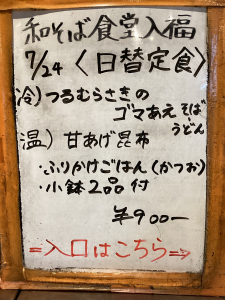 和そば食堂入福
7/24〈日替定食〉
冷)つるむらさきの
ゴマあえ そば・うどん
温)甘あげ昆布
・ふりかけごはん(かつお)
・小鉢2品付
¥900-
⇒入口はこちら⇒